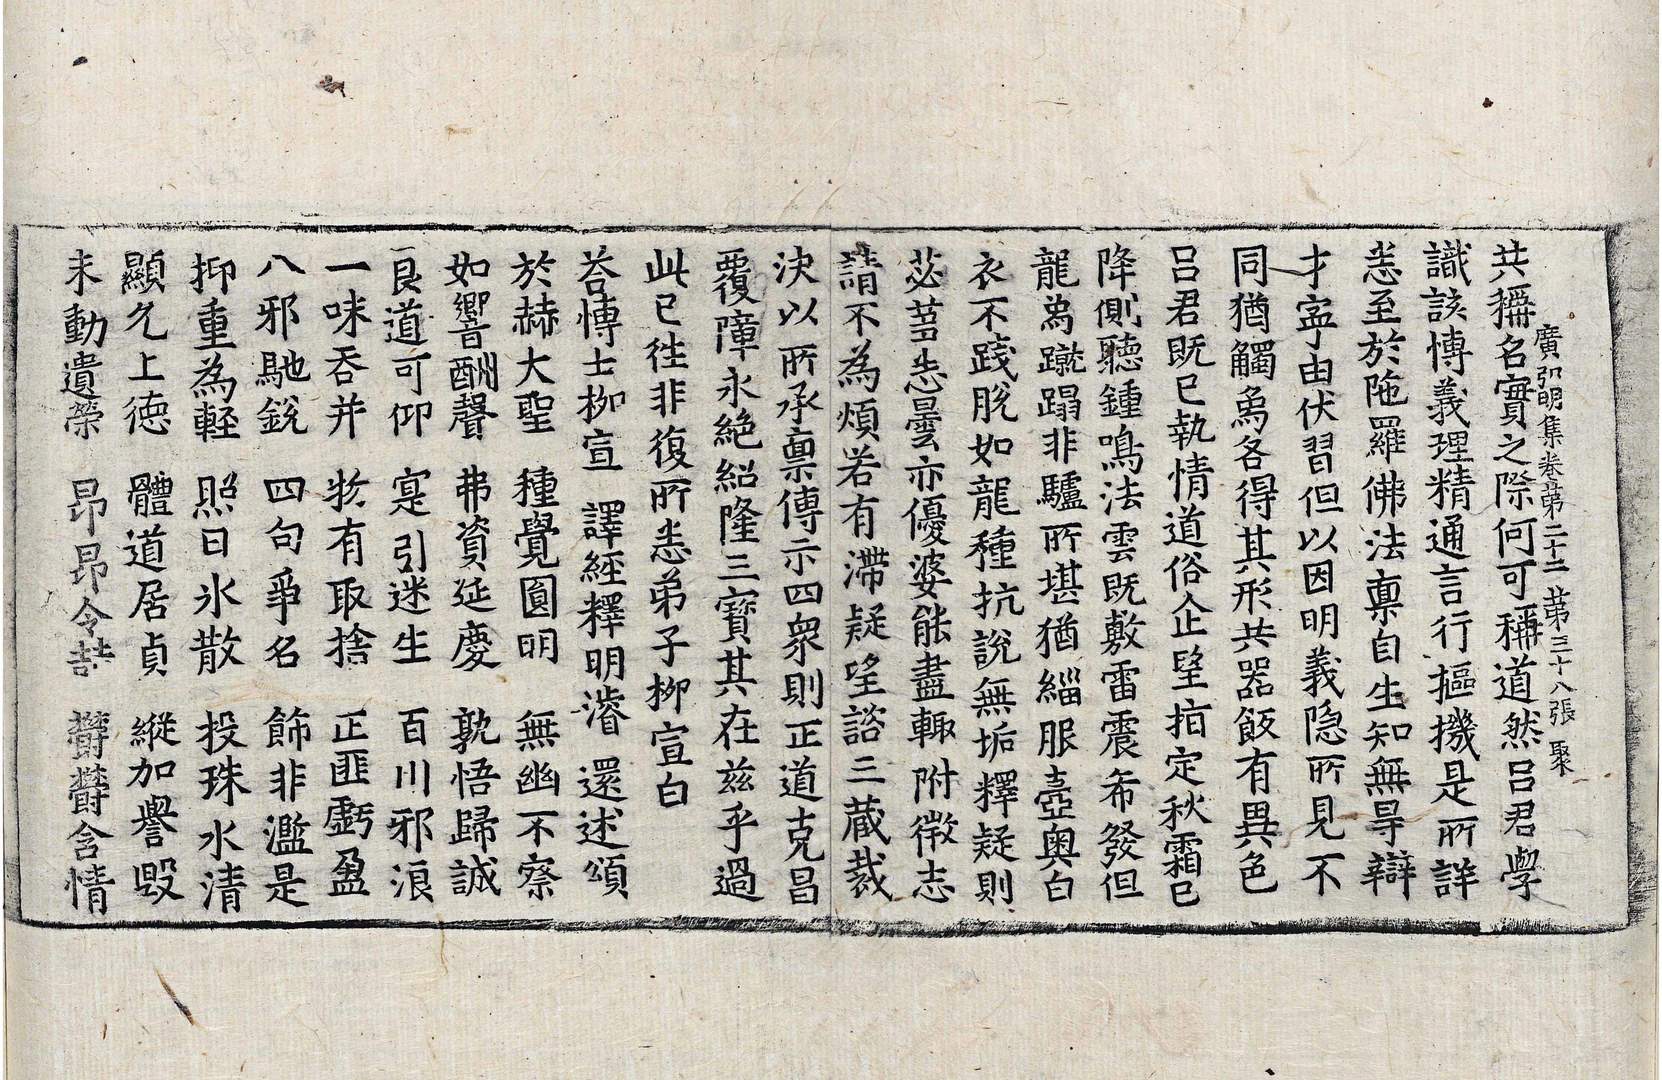 廣弘明集卷第二十二 第三十八張 聚
共稱名實之際何可稱道然呂君學
識該博義理精通言行摳機是所詳
悉至於陁羅佛法稟自生知無㝵辯
才寧由伏習但以因明義隱所見不
同猶觸爲各得其形共器飯有異色
呂君既已執情道俗企望指定秋霜已
降側聽鍾鳴法雲既敷雷震希發但
龍爲蹴蹋非驢所堪猶緇服壼奧白
衣不踐脫如龍種抗說無垢釋疑則
苾芻悉曇亦優婆能盡輙附微志
請不為煩若有滯疑望諮三藏裁
決以所承稟傳示四衆則正道克昌
覆障永絶紹隆三寶其在茲乎過
此已往非復所悉弟子柳宣白
荅博士柳宣 譯經釋明濬 還述頌
於赫大聖 種覺圓明 無幽不察
如響酬聲 弗資延慶 孰悟歸誠
良道可仰 寔引迷生 百川邪浪
一味吞并 物有取捨 正匪虧盈
八邪馳銳 四句爭名 飾非濫是
抑重為輕 照日氷散 投珠水清
顯允上德 體道居貞 縱加譽毀
未動遺榮 昂昂令喆 欝欝含情